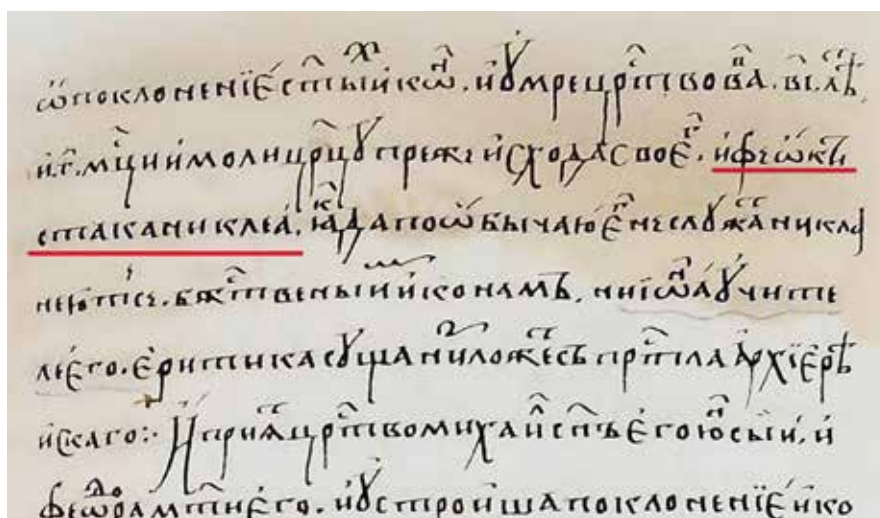 ѿ поклоненїе ст҃ы иконъ. и ꙋмре црⷭ҇твовавъ. в҃і. лѣ.
и.г҃. мцⷭ҇и и моли црцꙋ преже исхода своеⷢ. и феѡкти
стаканиклеа. ꙗкда по ѡбычаю еⷢ не слꙋжа ни кла
неютсѧ. бжⷭ҇твеныи иконамъ. ни іѡана ꙋчите
ле его. еритика сꙋща низложесъ прⷭ҇тла архїерѣ
искаго:· И приꙗ црⷭ҇тво михаил сн҃ъ его юсыи. и
феѡдора мт҃и его. и ꙋстроиша поклоненїе ико